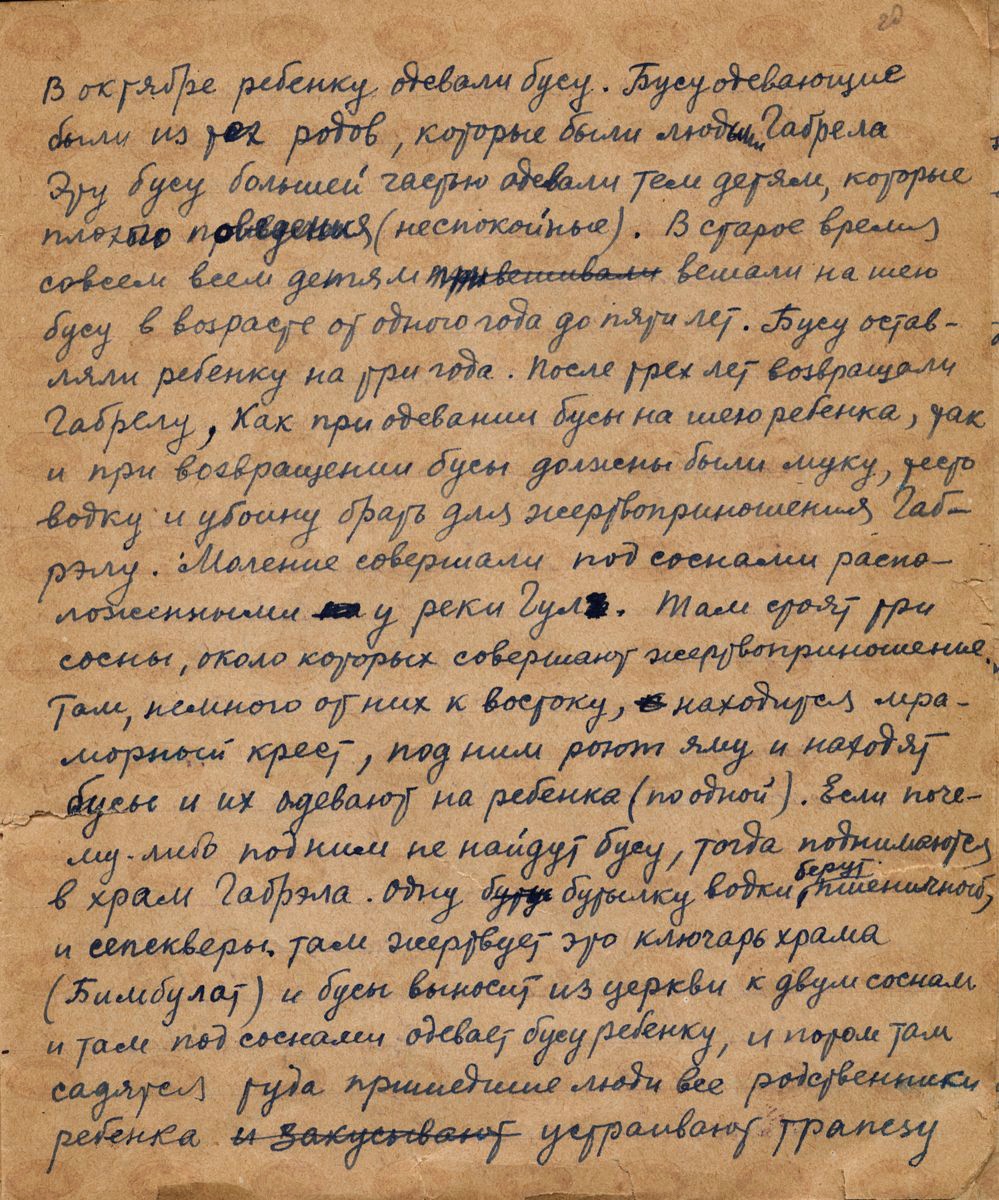 20
В октябре ребенку одевали бусу. Бусу одевающие
были из тех родов, которые были людьми Габрела
Эту бусу большей частью одевали тем детям, которые
плохого поведения (неспокойные). В старое время
совсем всем детям привешивали вешали на шею
бусу в возрасте от одного года до пяти лет. Бусу остав-
ляли ребенку на три года. После трех лет возвращали
Габрелу, Как при одевании бусы на шею ребенка, так
и при возвращении бусы должны были муку, тесто
водку и убоину брать для жертвоприношения Габ-
рэлу. Моление совершали под соснами распо-
ложенными на у реки Гулз. Там стоят три
сосны, около которых совершают жертвоприношение.
Там, немного от них к востоку, находится мра-
морный крест, под ним роют яму и находят
бусы и их одевают на ребенка (по одной). Если поче-
му-либо под ним не найдут бусу, тогда поднимаются
в храм Габрэла. одну бутылку водки берут пшеничной,
и сепскверы. там жертвует это ключарь храма
(Бимбулат) и бусы выносит из церкви к двум соснам
и там под соснами одевает бусу ребенку, и потом там
садятся туда пришедшие люди все родственники
ребенка и закусывают устраивают трапезу